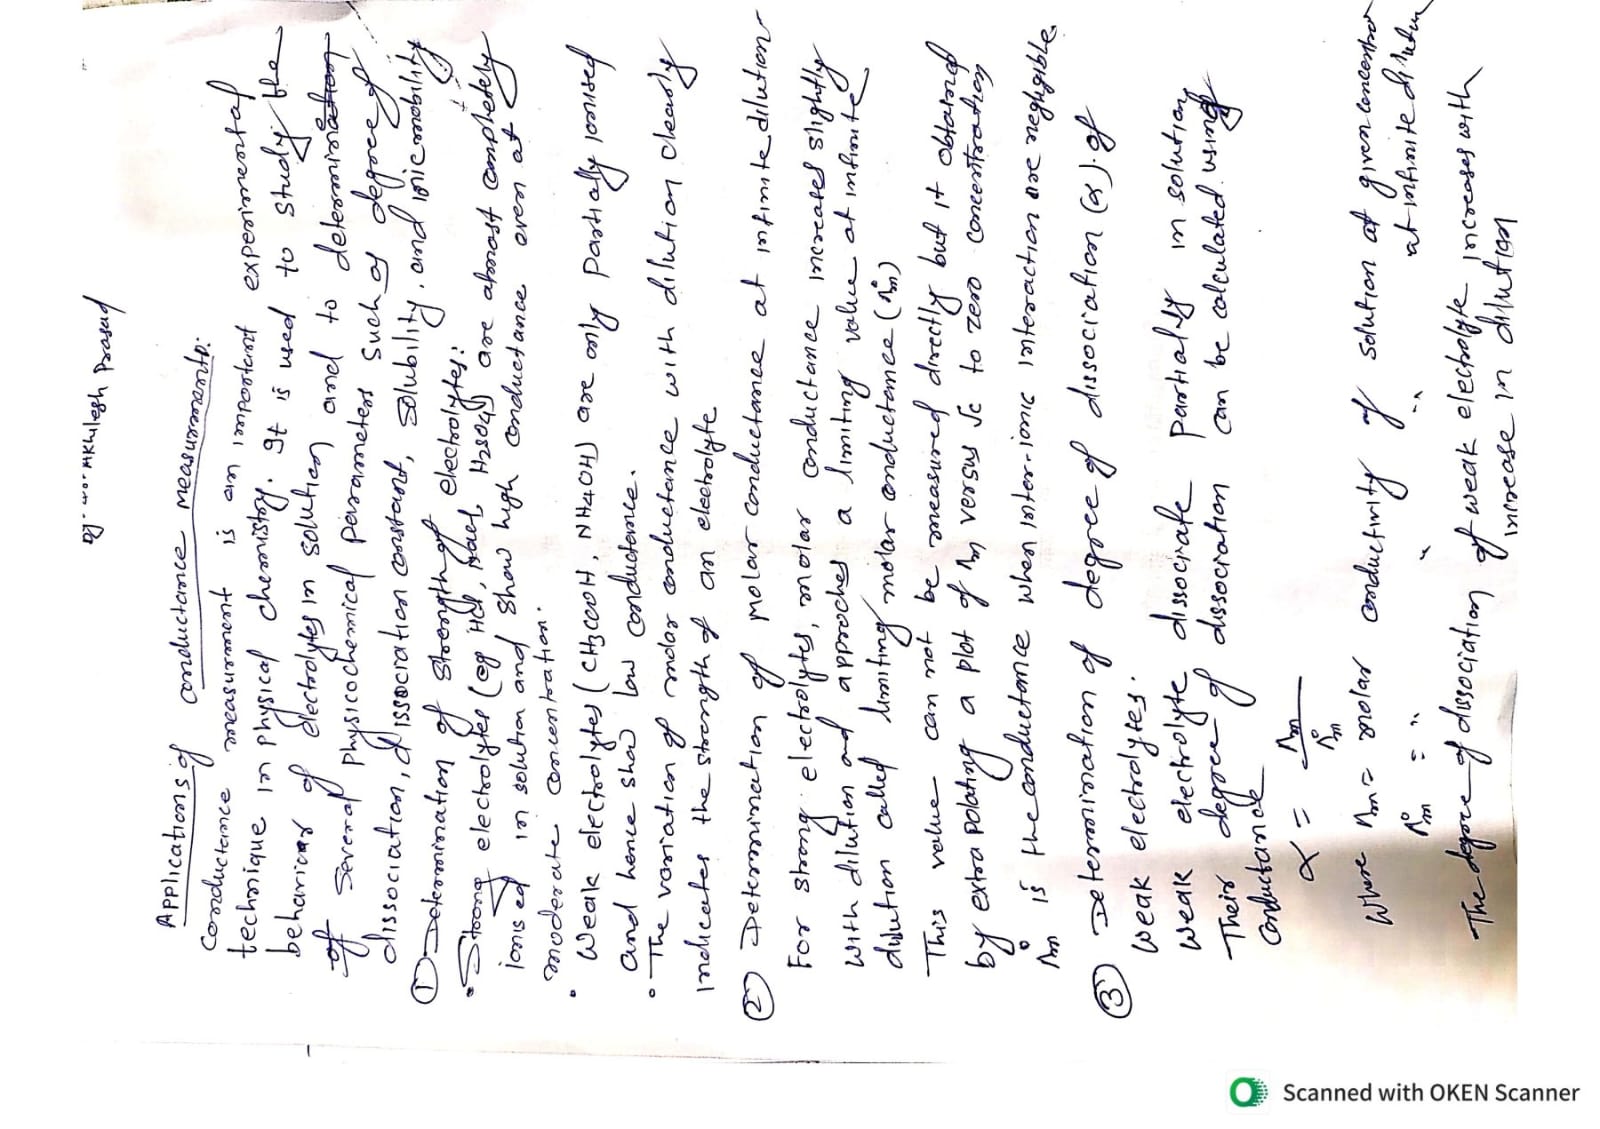 By: Akhilesh Prasad
Applications of conductance measurments:
Conductance measurment is an important experimental
technique in physical chemistry. It is used to study the
behaviour of electrolytes in solution and to determination
of several physicochemical parameters such as degree of
dissociation, dissociation constant, solubility, and ionic mobility
① Determination of strength of electrolytes:
• Strong electrolytes (eg HCl, NaCl, H2SO4) are almost completely
ionised in solution and show high conductance even at
moderate concentration.
• Weak electrolytes (CH3COOH, NH4OH) are only partially ionised
and hence show low conductance.
• The variation of molar conductance with dilution clearly
indicates the strength of an electrolyte
② Determination of molar conductance at infinite dilution-
For strong electrolytes, molar conductance increases slightly
with dilution and approches a limiting value at infinite
dilution called limiting molar conductance (Λ°m)
This value can not be measured directly but it obtained
by extra polating a plot of Λm versus √c to zero concentration
Λ°m is the conductance when inter-ionic interaction are negligible.
③ Determination of degree of dissociation (α) of
weak electrolytes.
Weak electrolyte dissociate partially in solution
Their degree of dissociation can be calculated using
conductance
α = Λm / Λ°m
Where Λm = molar conductivity of solution at given concentration
Λ°m = " " " at infinite dilution
The degree of dissociation of weak electrolyte increases with
increase in dilution
Scanned with OKEN Scanner